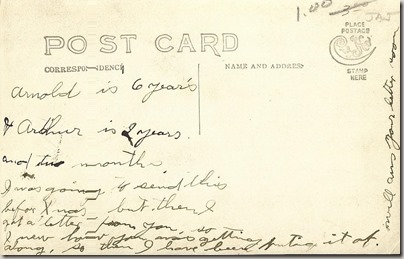 1.00
POST CARD
CORRESPONDENCY
NAME AND ADDRESS
PLACE
POSTAGE
STAMP
HERE
Arnold is 6 years
& Arthur is 2 years.
and two months
I was going to send this
before I now but then I
got a letter from you, so
I new how you was getting
along, so then I have been puting it of.
will ans your letter soon